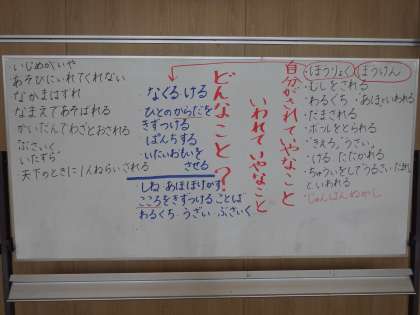 ぼうりょく ぼうけん
・むしをされる
・わるくち・あほといわれる
・だまされる
・ボールをとられる
・"きえろ""うざい"
・ける たたかれる
・ちゅういをして"うるさい""だまれ"
といわれる
・じゅんばんぬかし
自分がされていやなこと
いわれていやなこと
どんなこと?
・なぐる ける
・ひとのからだを
きずつける
・ぱんちする
・いたいおもいを
させる
・しね・あほ ぼけ かす
・こころをきずつけることば
・わるくち・うざい ぶさいく
・いじめがいや
・あそびにいれてくれない
・なかまはずれ
・なまえであそばれる
・かいだんでわざとおされる
・ぶさいく
・いたずら
・天下のときに1人ねらいされる